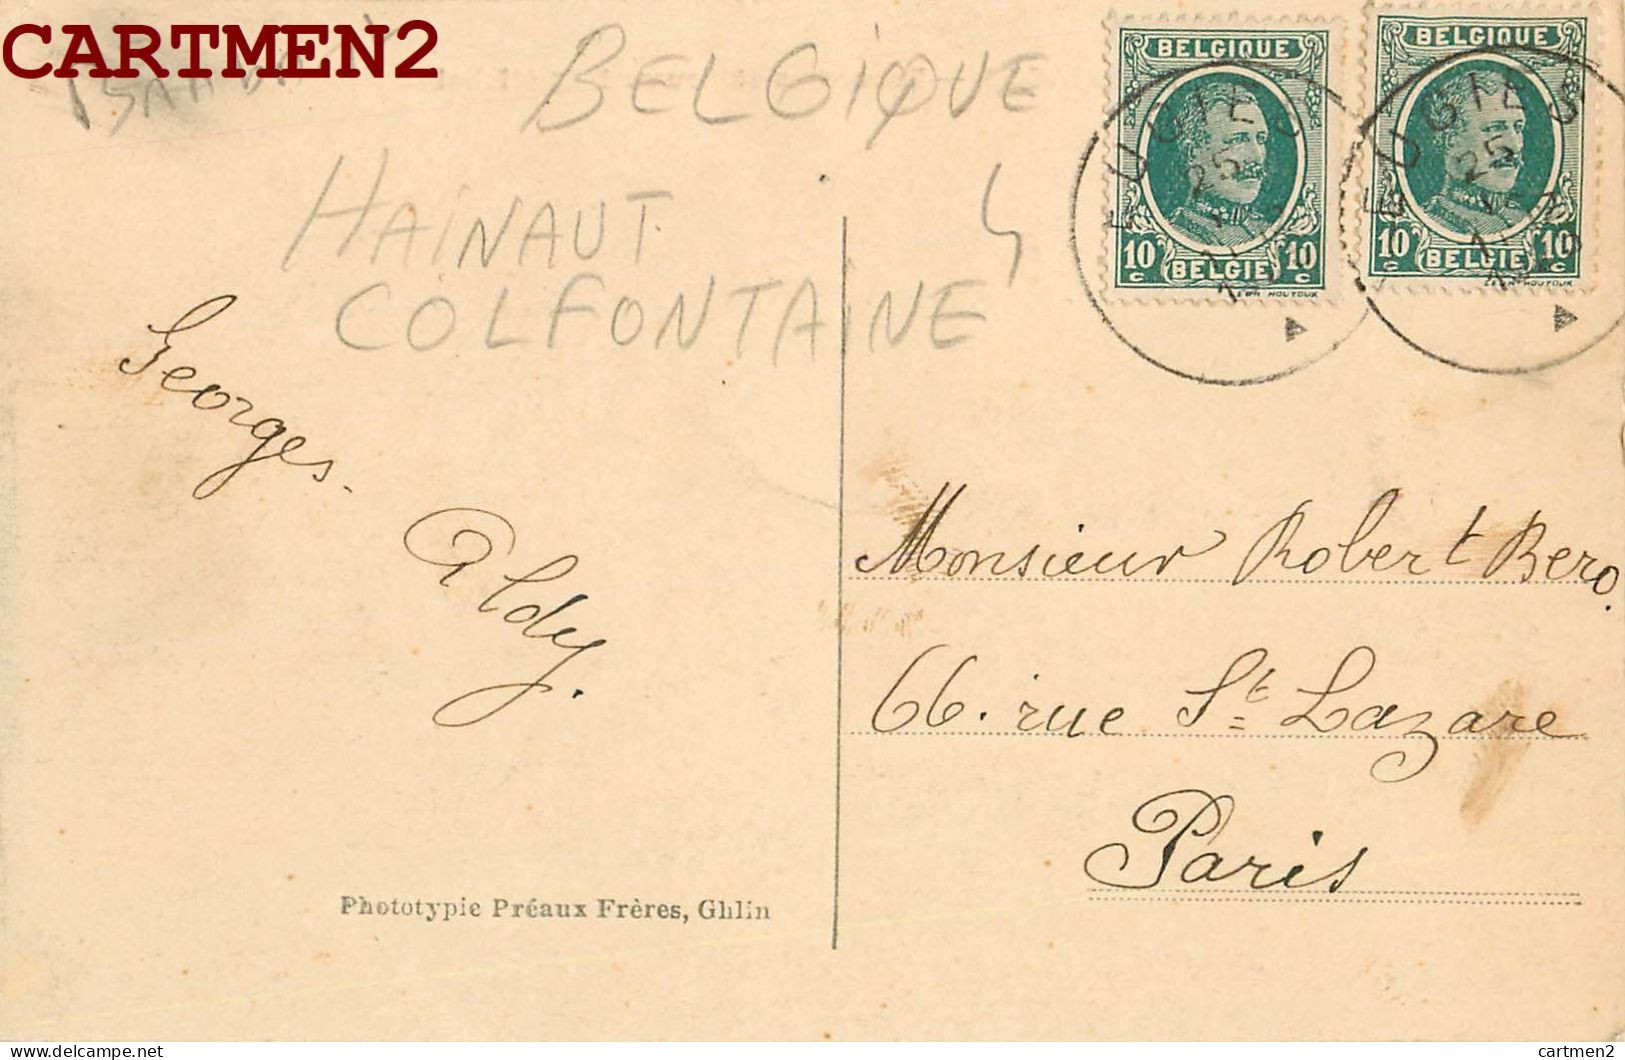 CARTMEN2
BELGIQUE
HAINAUT
COLFONTAINE
BELGIQUE
10 c BELGIE 10 c
BELGIQUE
10 c BELGIE 10 c
EUGIES
25
EUGIES
25
Georges.
Aldy.
Monsieur Robert Bero.
66. rue St Lazare
Paris
Phototypie Préaux Frères, Ghlin
delcampe.net
cartmen2